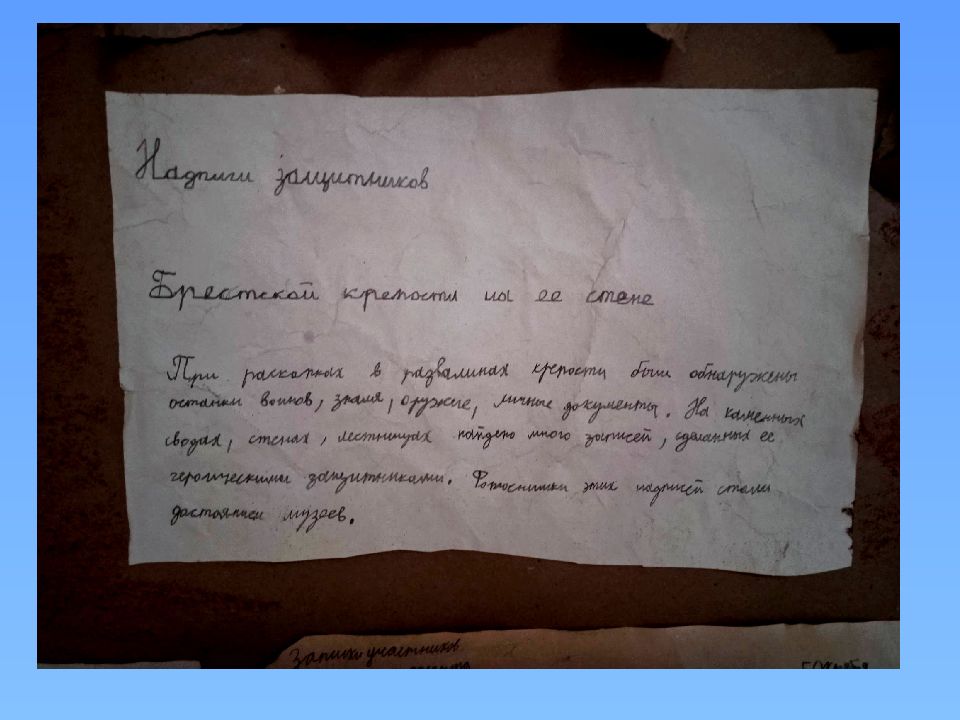 Надписи защитников
Брестской крепости на ее стене
При раскопках в развалинах крепости были обнаружены
останки воинов, знамя, оружие, личные документы. На каменных
сводах, стенах, лестницах найдено много записей, сделанных ее
героическими защитниками. Фотоснимки этих надписей стали
достоянием музеев.
Записки участников